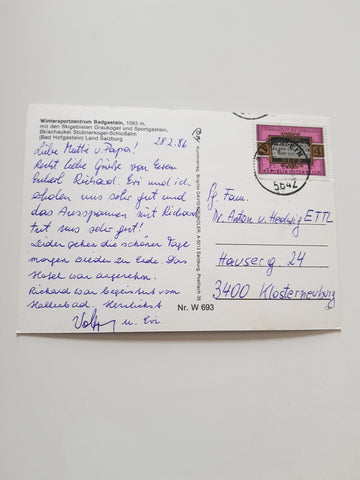 Wintersportzentrum Badgastein, 1083 m,
mit den Skigebieten Graukogel und Sportgastein,
Skischaukel Stubnerkogel-Schloßalm
(Bad Hofgastein) Land Salzburg
28.2.86
Liebe Mutti u. Papa!
Recht liebe Grüße von Eurem
Enkerl Richard. Evi und ich
erholen uns sehr gut und
das Ausspannen mit Richard
tut uns sehr gut!
Leider gehen die schönen Tage
morgen wieder zu Ende. Das
Hotel war angenehm.
Richard war begeistert vom
Hallenbad. Herzlichst
u. Evi
Nr. W 693
5642
4
Fam.
Dr. Anton u. Hedwig ETTL
Hauserg 24
3400 Klosterneuburg